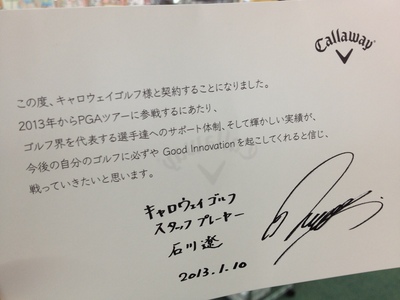 Callaway
この度、キャロウェイゴルフ様と契約することになりました。
2013年からPGAツアーに参戦するにあたり、
ゴルフ界を代表する選手達へのサポート体制、そして輝かしい実績が、
今後の自分のゴルフに必ずや Good Innovationを起こしてくれると信じ、
戦っていきたいと思います。
キャロウェイゴルフ
スタッフプレーヤー
石川遼
2013.1.10